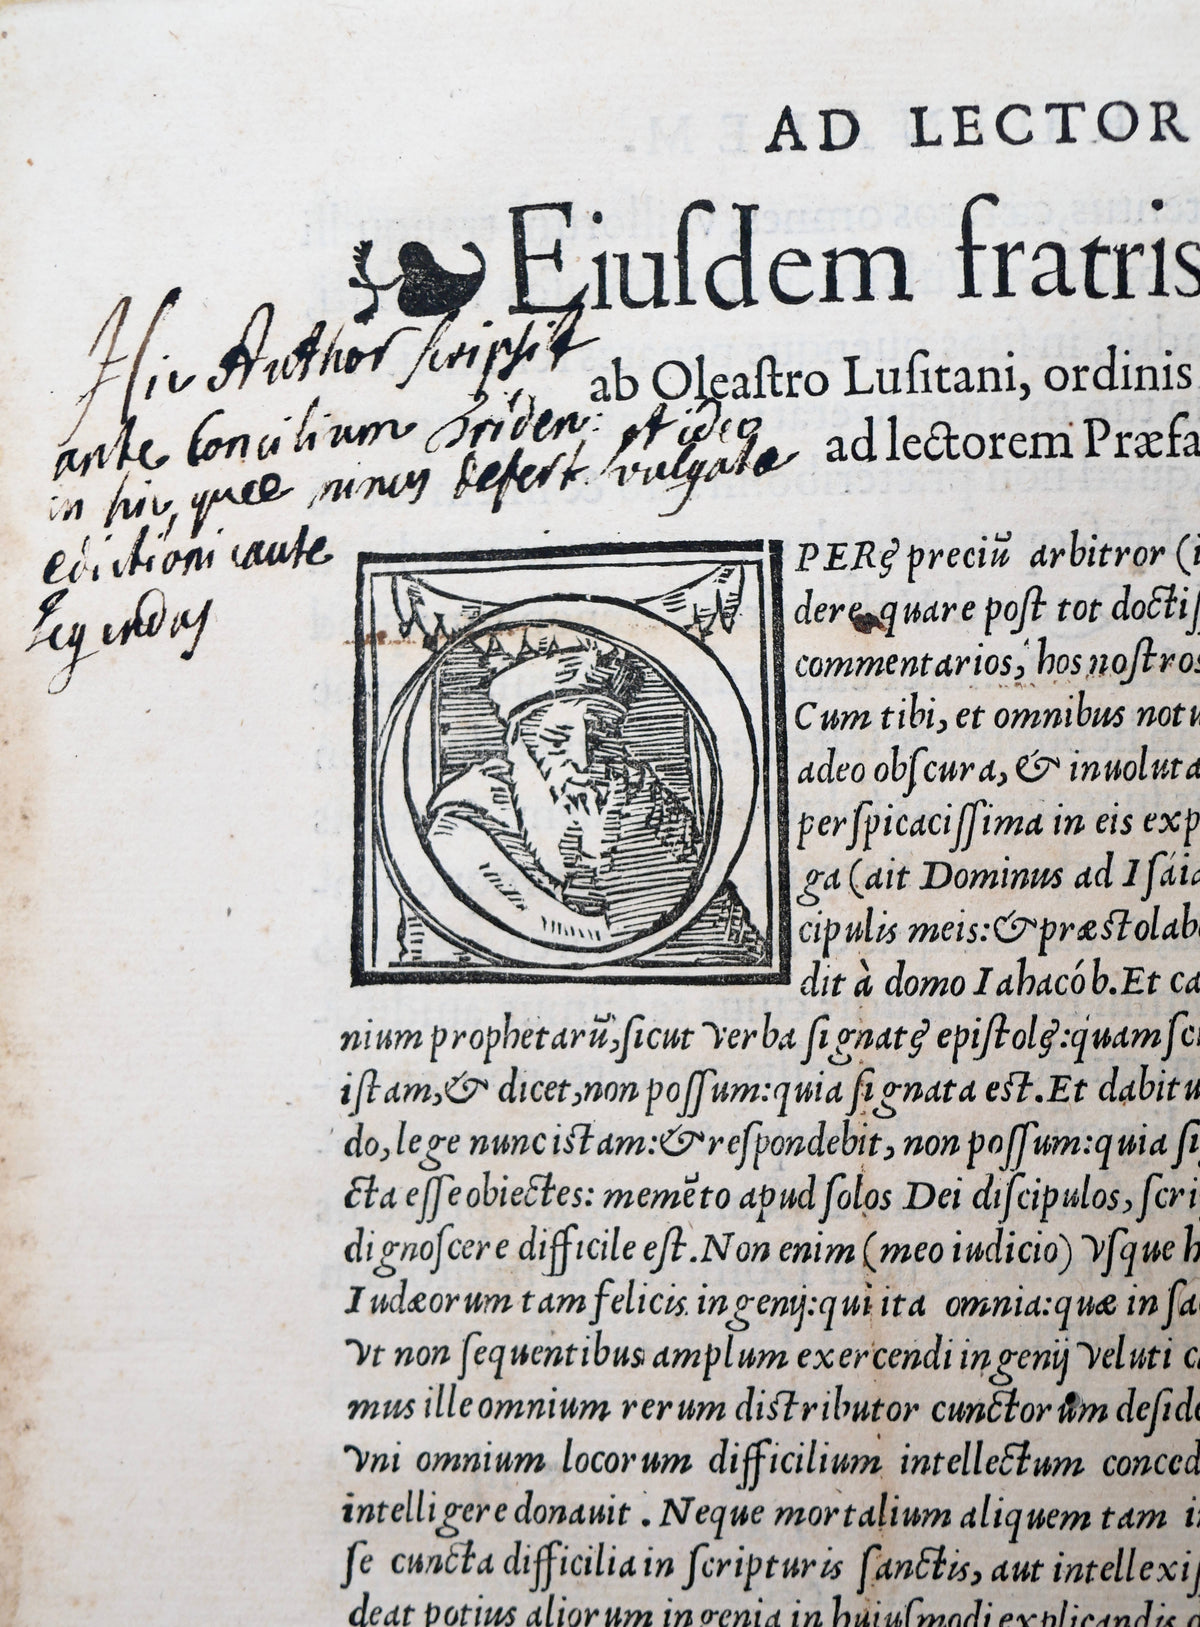 AD LECTOR
Eiuſdem fratris
ab Oleaſtro Luſitani, ordinis
ad lectorem Præfa
Hic Author ſcripſit
ante Concilium Triden: et ideo
in hic, quæ minus defert vulgatæ
editioni caute
Legendus
OPERę preciũ arbitror (i
dere quare poſt tot doctiſ
commentarios, hos noſtros
Cum tibi, et omnibus notu
adeo obſcura, & inuoluta
perſpicaciſſima in eis exp
ga (ait Dominus ad Iſáia
cipulis meis: & præſtolab
dit à domo Iahacób. Et ca
nium prophetarũ, ſicut verba ſignatę epiſtolę: quam ſci
iſtam, & dicet, non poſſum: quia ſignata eſt. Et dabitu
do, lege nunc iſtam: & reſpondebit, non poſſum: quia ſi
cta eſſe obiectes: memẽto apud ſolos Dei diſcipulos, ſcri
dignoſcere difficile eſt. Non enim (meo iudicio) vſque h
Iudæorum tam felicis ingenij: qui ita omnia: quæ in ſa
vt non ſequentibus amplum exercendi ingenij veluti c
mus ille omnium rerum diſtributor cunctorum deſide
vni omnium locorum difficilium intellectum conced
intelligere donauit. Neque mortalium aliquem tam i
ſe cuncta difficilia in ſcripturis ſanctis, aut intellexiſ
deat potius aliorum ingenia in huiuſmodi explicandis